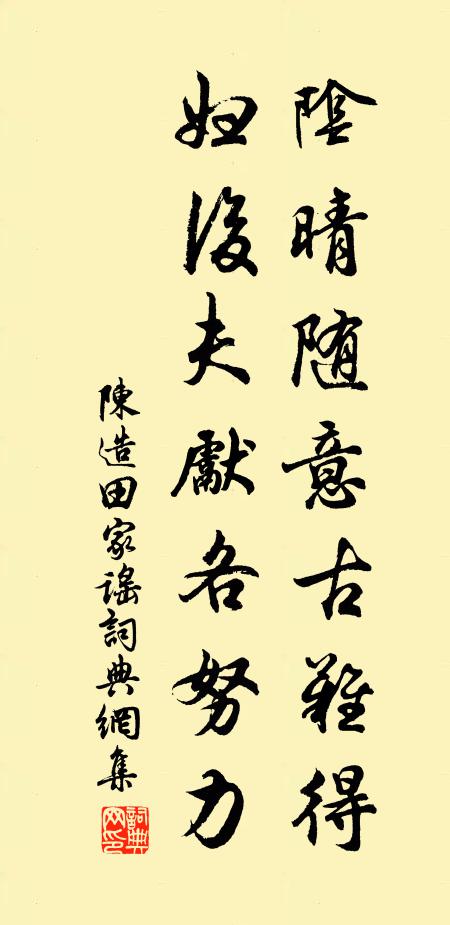 陰晴随意古難得
妇後夫獻各努力
陳造田家謠詞典網集
詞典网印